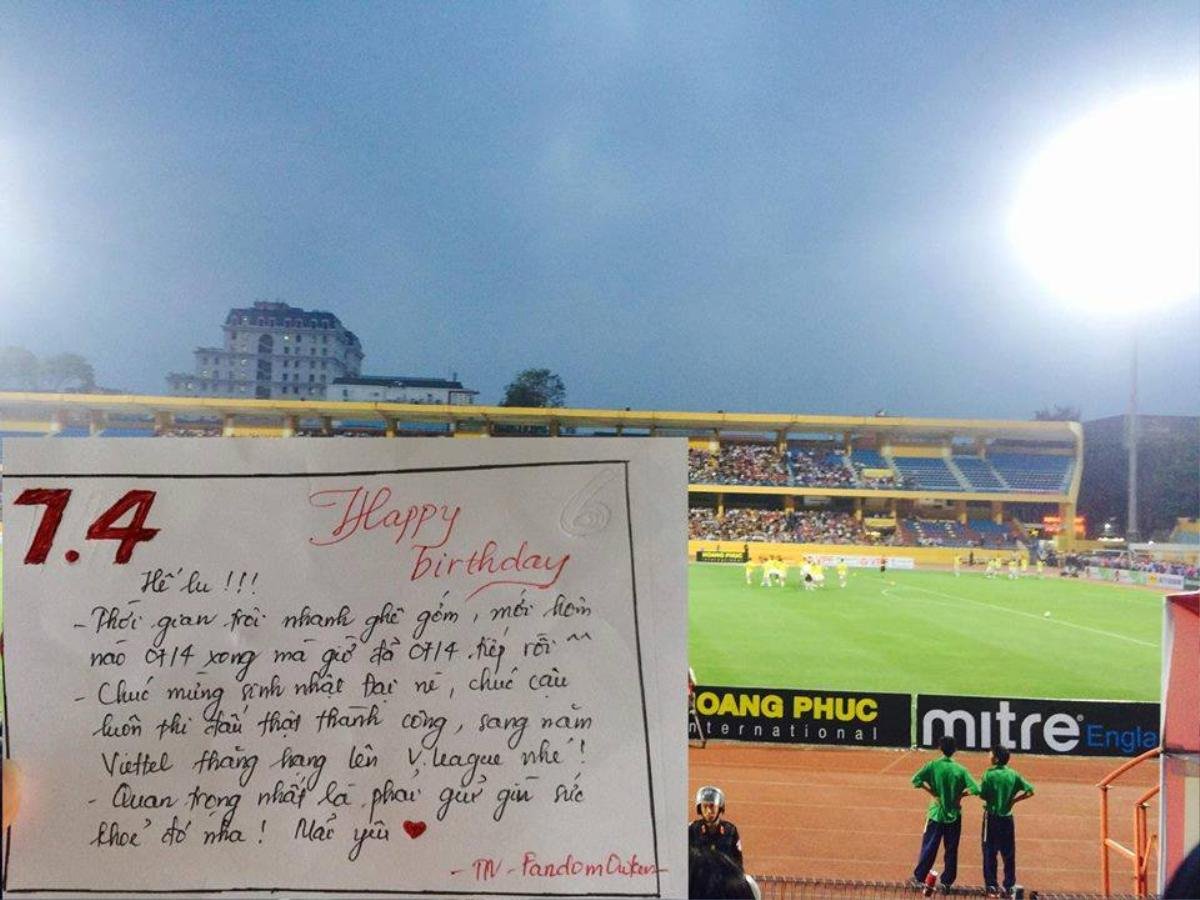 7.4
Happy
birthday
Hế lu !!!
- Thời gian trôi nhanh ghê gớm, mới hôm
nào 07/4 xong mà giờ đã 07/4 tiếp rồi ^^
- Chúc mừng sinh nhật Đại nè, chúc cậu
luôn thi đấu thật thành công, sang năm
Viettel thăng hạng lên V.league nhé !
- Quan trọng nhất là phải giữ gìn sức
khoẻ đó nha ! Mãi yêu ❤
OANG PHUC
nternational
mitre
Engla
HOANG PHUC